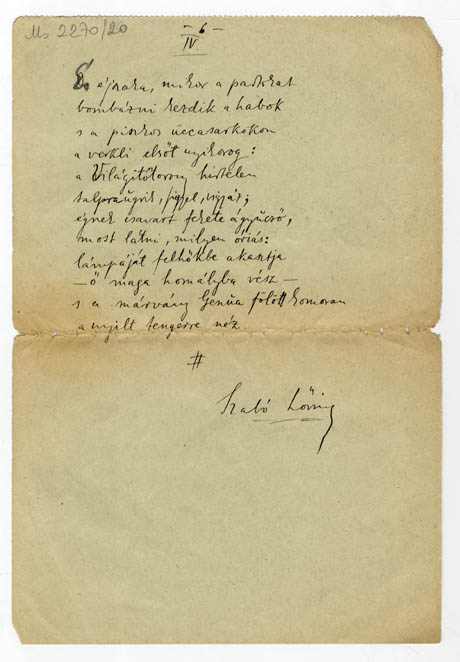 Ms 2270/20
– 6 –
IV.
És éjszaka, mikor a partokat
bombázni kezdik a habok
s a piszkos uccasarkokon
a verkli elsőt nyikorog:
a Világítótorony hirtelen
talpraugrik, figyel, vigyáz;
égnek csavart fekete ágyúcső,
most látni, milyen óriás:
lámpáját felhőkbe akasztja
– ő maga homályba vész –
s a márvány Genua fölött komoran
a nyílt tengerre néz.
#
Szabó Lőrinc